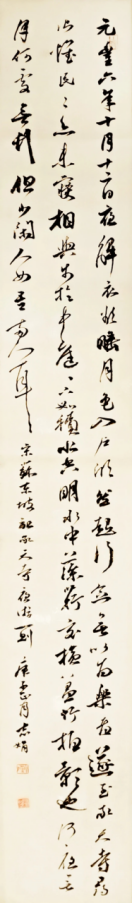 元豐六年十月十二日夜解衣欲睡月色入戶欣然起行念無以為樂者遂至承天寺尋
張懷民〻亦未寢相與步於中庭〻下如積水空明水中藻荇交橫蓋竹柏影也何夜無
月何處無竹但少閑人如吾兩人耳
宋蘇東坡記承天寺夜遊一則 庚月